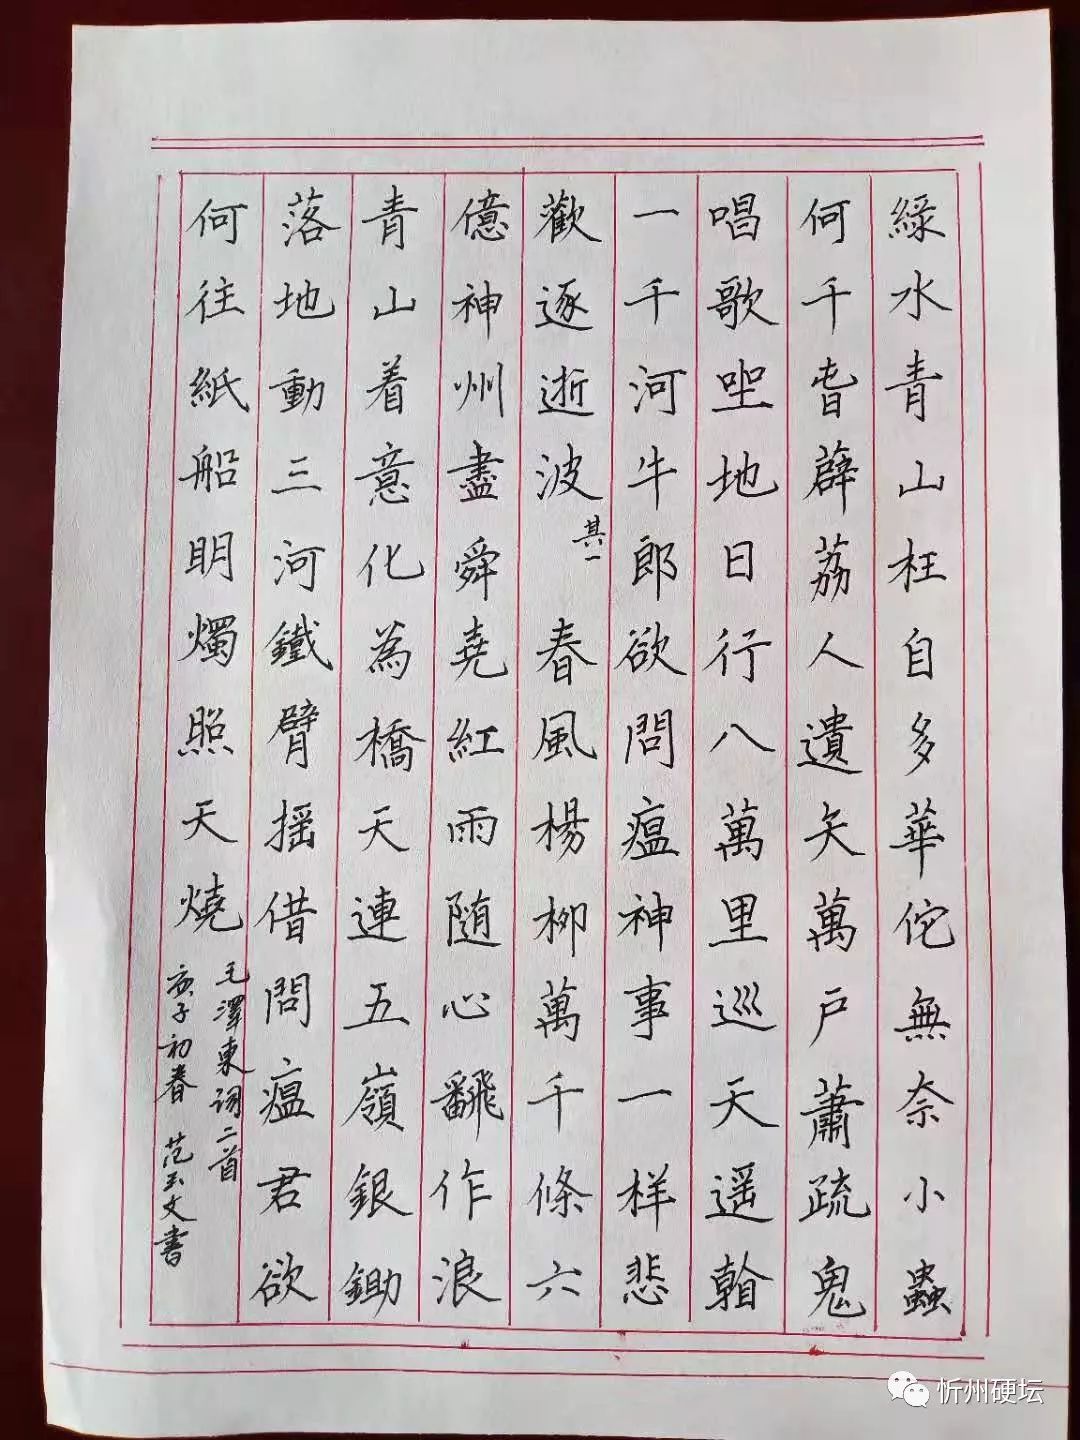 綠水青山枉自多華佗無奈小蟲
何千旾薜荔人遺矢萬戶蕭疏鬼
唱歌坐地日行八萬里巡天遥看
一千河牛郎欲問瘟神事一样悲
歡逐逝波 其一 春風楊柳萬千條六
億神州盡舜堯紅雨随心翻作浪
青山着意化為橋天連五嶺銀鋤
落地動三河鐵臂摇借問瘟君欲
何往紙船明燭照天燒
毛澤東词二首
庚子初春 范玉文書
忻州硬坛